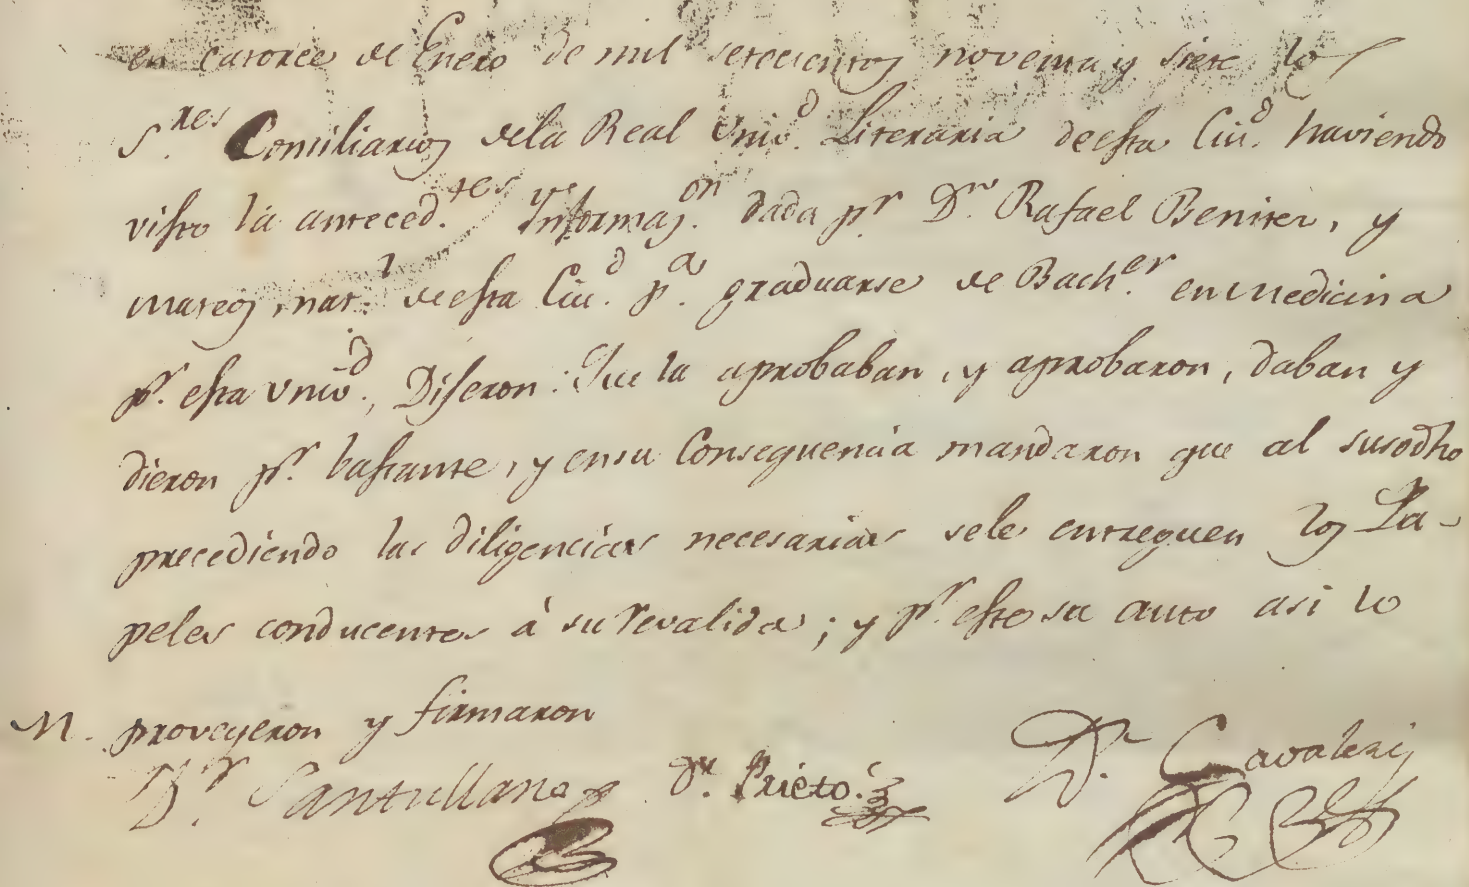 en catorce de Enero de mil setecientos noventa y siete los
S.res Consiliarios dela Real Univ.d Literaria de esta Ciu.d haviendo
visto la anteced.tes Informaz.on dada p.r D.n Rafael Benitez, y
Mateos, nat.l de esta Ciu.d p.a graduarse de Bach.er en Medicina
p.r esta Univ.d, Dijeron: Que la aprobaban, y aprobaron, daban y
dieron p.r bastante, y en su Consequencia mandaron que al susodho
precediendo las diligencias necesarias sele entreguen los Pa-
peles conducentes à su revalida; y p.r este su auto asi lo
M. proveyeron y firmaron
D.r Santullano D.r Prieto D.r Cavaleri